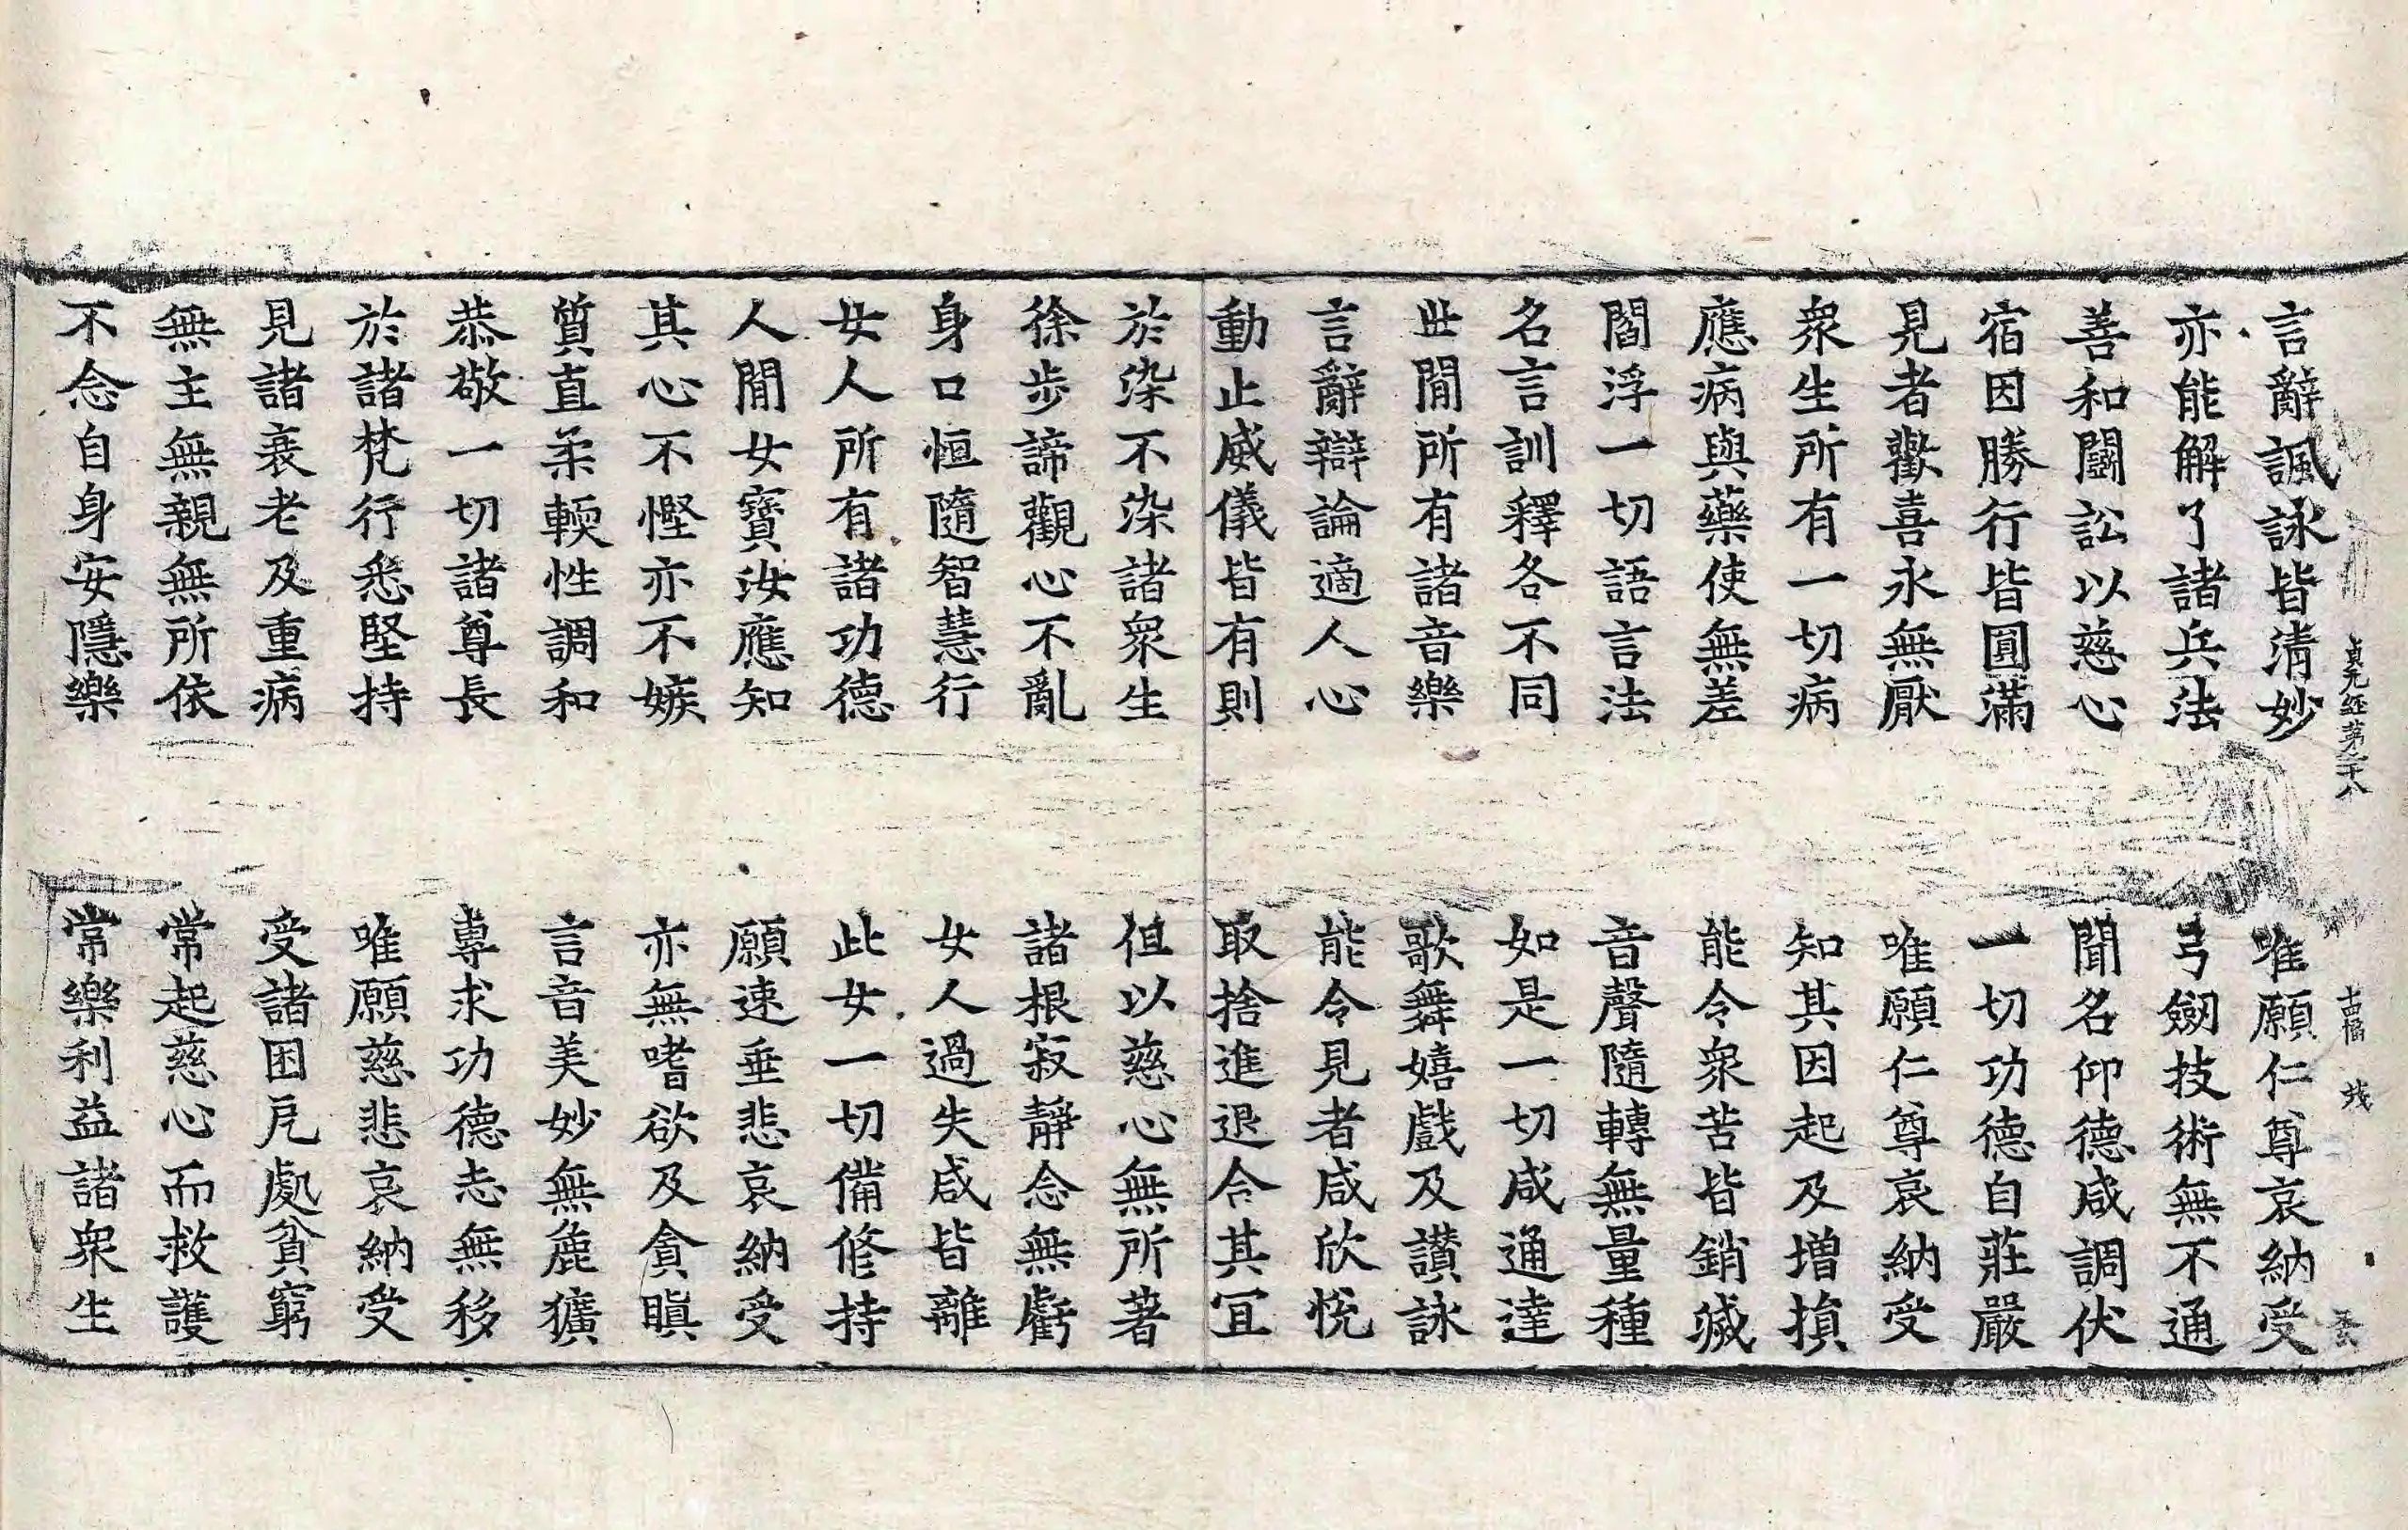 言辭諷詠皆清妙　唯願仁尊哀納受
亦能解了諸兵法　弓劒技術無不通
善和鬪訟以慈心　聞名仰德咸調伏
宿因勝行皆圓滿　一切功德自莊嚴
見者歡喜永無厭　唯願仁尊哀納受
衆生所有一切病　知其因起及增損
應病與藥使無差　能令衆苦皆銷滅
閻浮一切語言法　音聲隨轉無量種
名言訓釋各不同　如是一切咸通達
世閒所有諸音樂　歌舞嬉戲及讚詠
言辭辯論適人心　能令見者咸欣悅
動止威儀皆有則　取捨進退合其冝
於染不染諸衆生　但以慈心無所著
徐步諦觀心不亂　諸根寂靜念無虧
身口恒隨智慧行　女人過失咸皆離
女人所有諸功德　此女一切備修持
人閒女寶汝應知　願速垂悲哀納受
其心不慳亦不嫉　亦無嗜欲及貪瞋
質直柔輭性調和　言音美妙無麁獷
恭敬一切諸尊長　專求功德志無移
於諸梵行悉堅持　唯願慈悲哀納受
見諸衰老及重病　受諸困厄處貧窮
無主無親無所依　常起慈心而救護
不念自身安隱樂　常樂利益諸衆生
貞元經第二十八